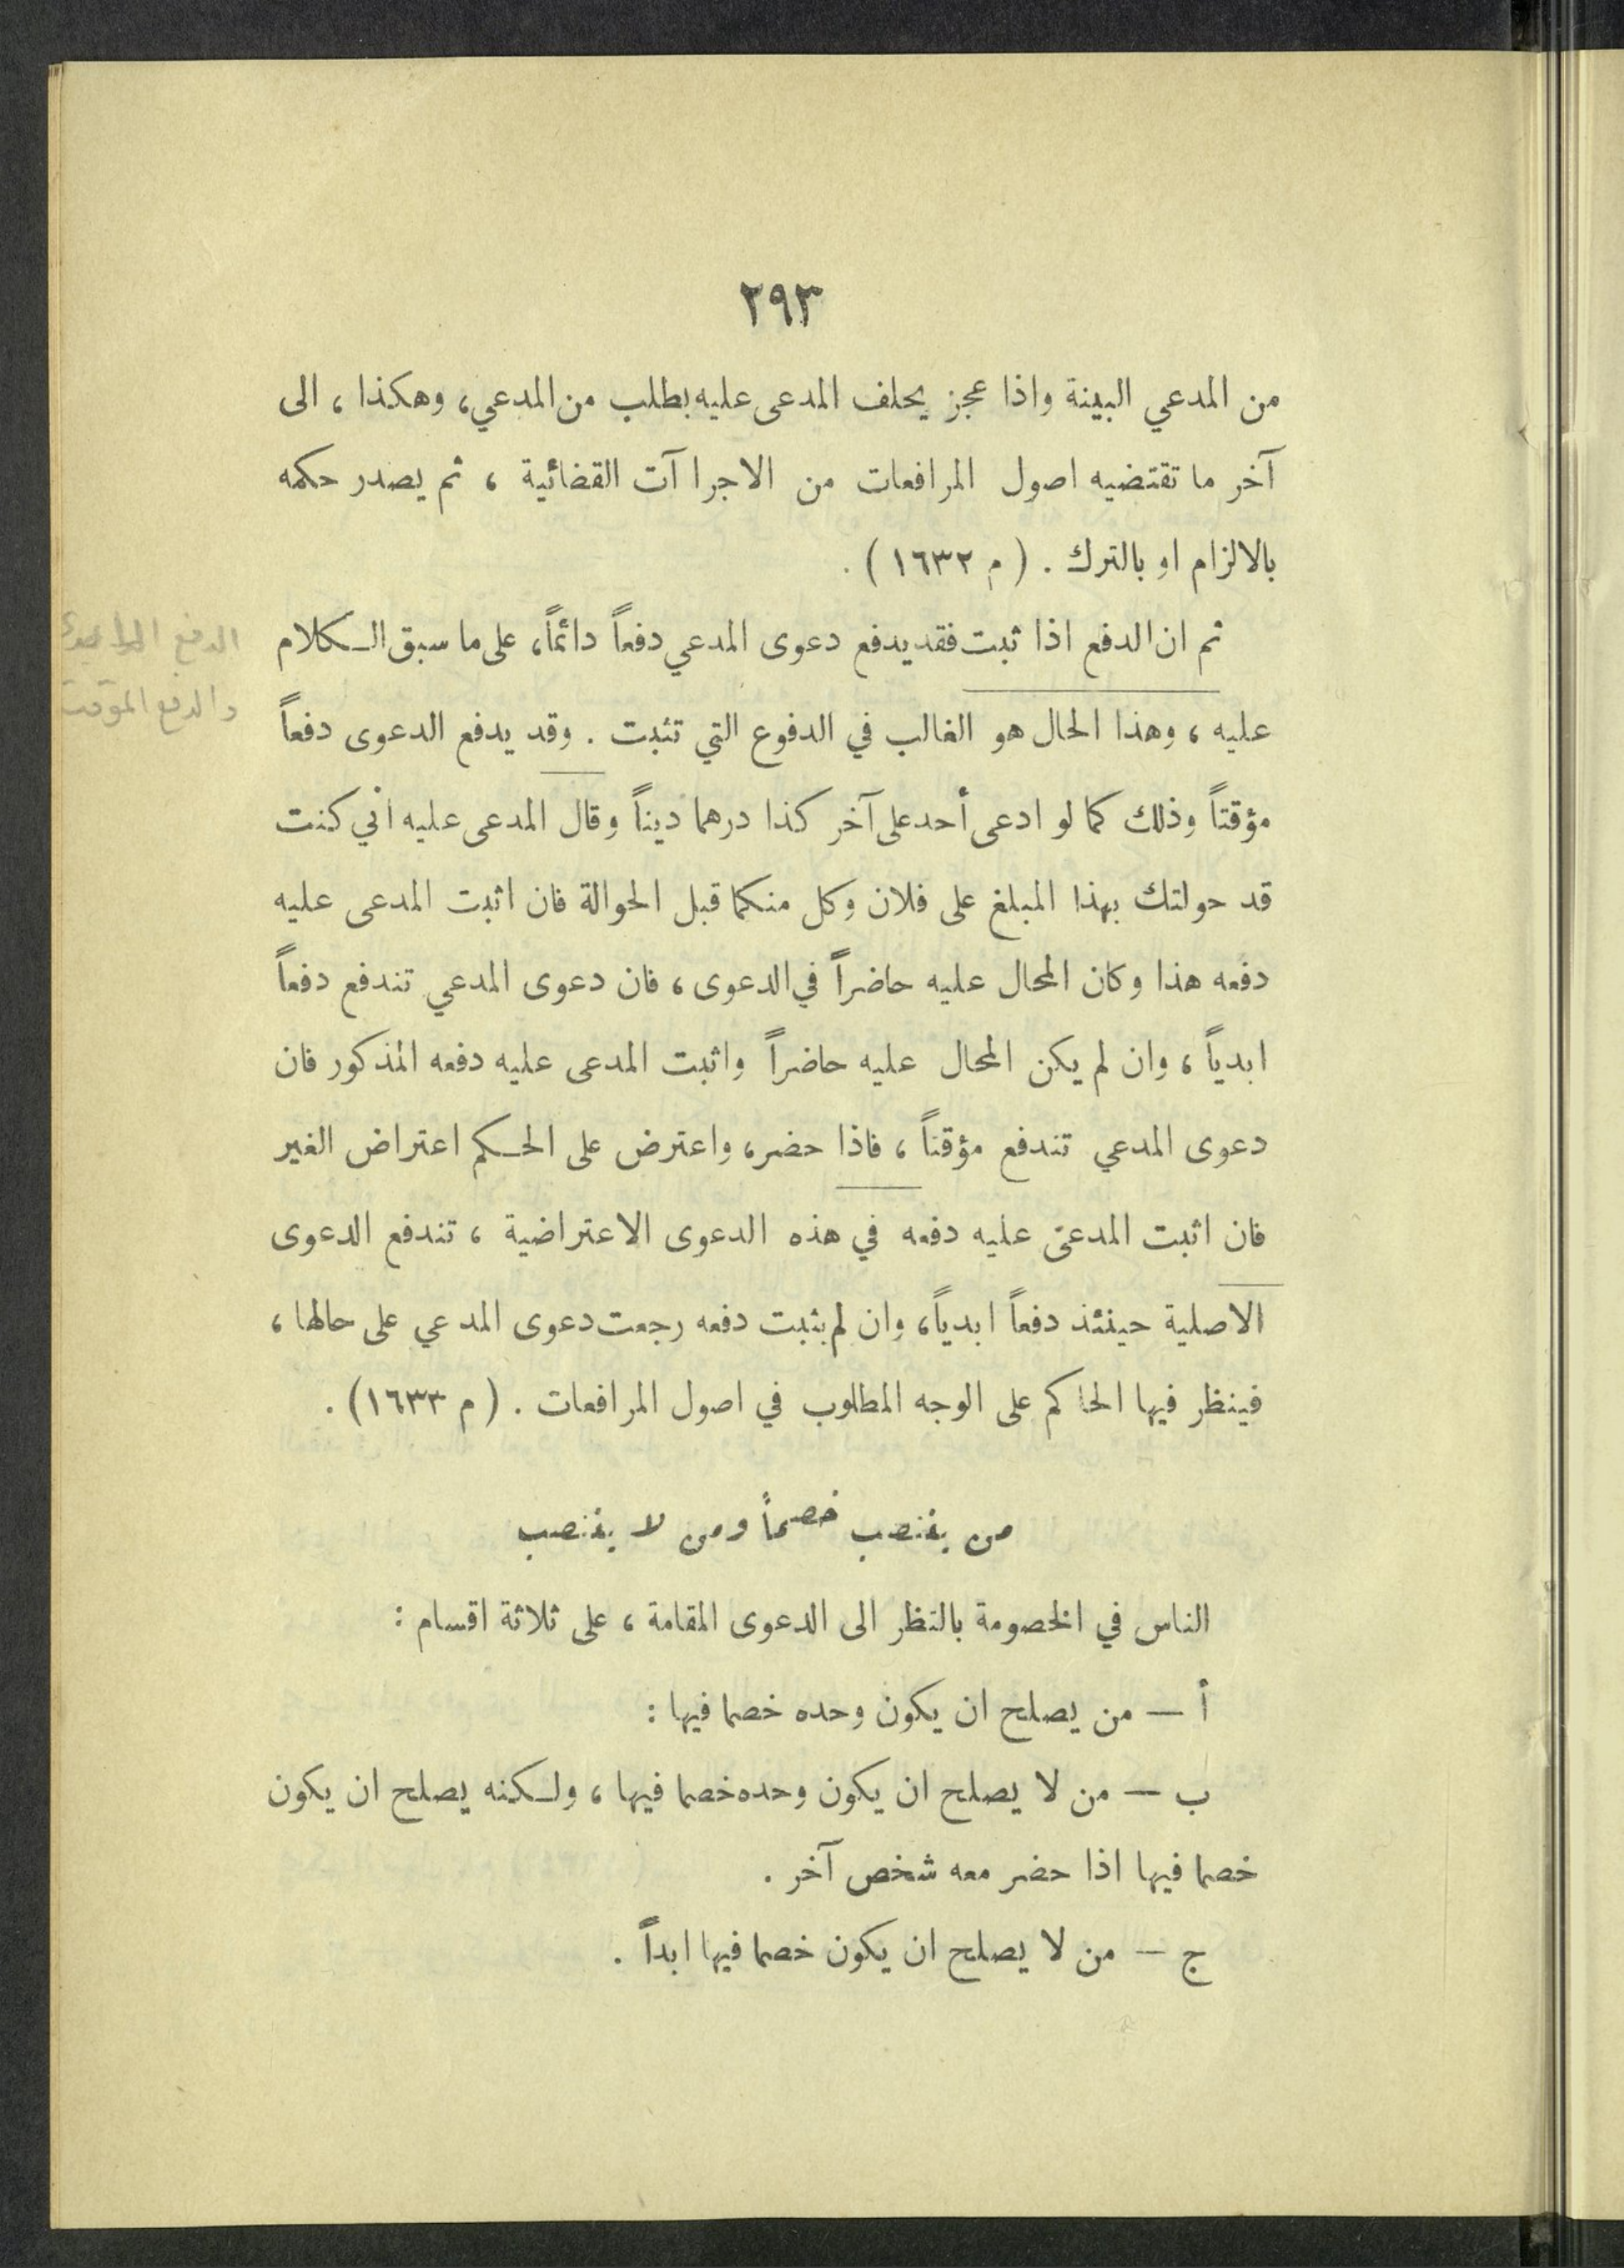 ٢٩٣
من المدعي البينة واذا عجز يحلف المدعى عليه بطلب من المدعي، وهكذا، الى
آخر ما تقتضيه اصول المرافعات من الاجراآت القضائية، ثم يصدر حكمه
بالالزام او بالترك. (م ١٦٣٢).
ثم ان الدفع اذا ثبت فقد يدفع دعوى المدعي دفعاً دائماً، على ما سبق الكلام
عليه، وهذا الحال هو الغالب في الدفوع التي تثبت. وقد يدفع الدعوى دفعاً
مؤقتاً وذلك كما لو ادعى أحد على آخر كذا درهما ديناً وقال المدعى عليه اني كنت
قد حولتك بهذا المبلغ على فلان وكل منكما قبل الحوالة فان اثبت المدعى عليه
دفعه هذا وكان المحال عليه حاضراً في الدعوى، فان دعوى المدعي تندفع دفعاً
ابدياً، وان لم يكن المحال عليه حاضراً واثبت المدعى عليه دفعه المذكور فان
دعوى المدعي تندفع مؤقتاً، فاذا حضر، واعترض على الحكم اعتراض الغير
فان اثبت المدعى عليه دفعه في هذه الدعوى الاعتراضية، تندفع الدعوى
الاصلية حينئذ دفعاً ابدياً، وان لم يثبت دفعه رجعت دعوى المدعي على حالها،
فينظر فيها الحاكم على الوجه المطلوب في اصول المرافعات. (م ١٦٣٣).
من ينتصب خصماً ومن لا ينتصب
الناس في الخصومة بالنظر الى الدعوى المقامة، على ثلاثة اقسام:
أ — من يصلح ان يكون وحده خصما فيها:
ب — من لا يصلح ان يكون وحده خصما فيها، ولكنه يصلح ان يكون
خصما فيها اذا حضر معه شخص آخر.
ج — من لا يصلح ان يكون خصما فيها ابداً.
الدفع
والدفع المؤقت